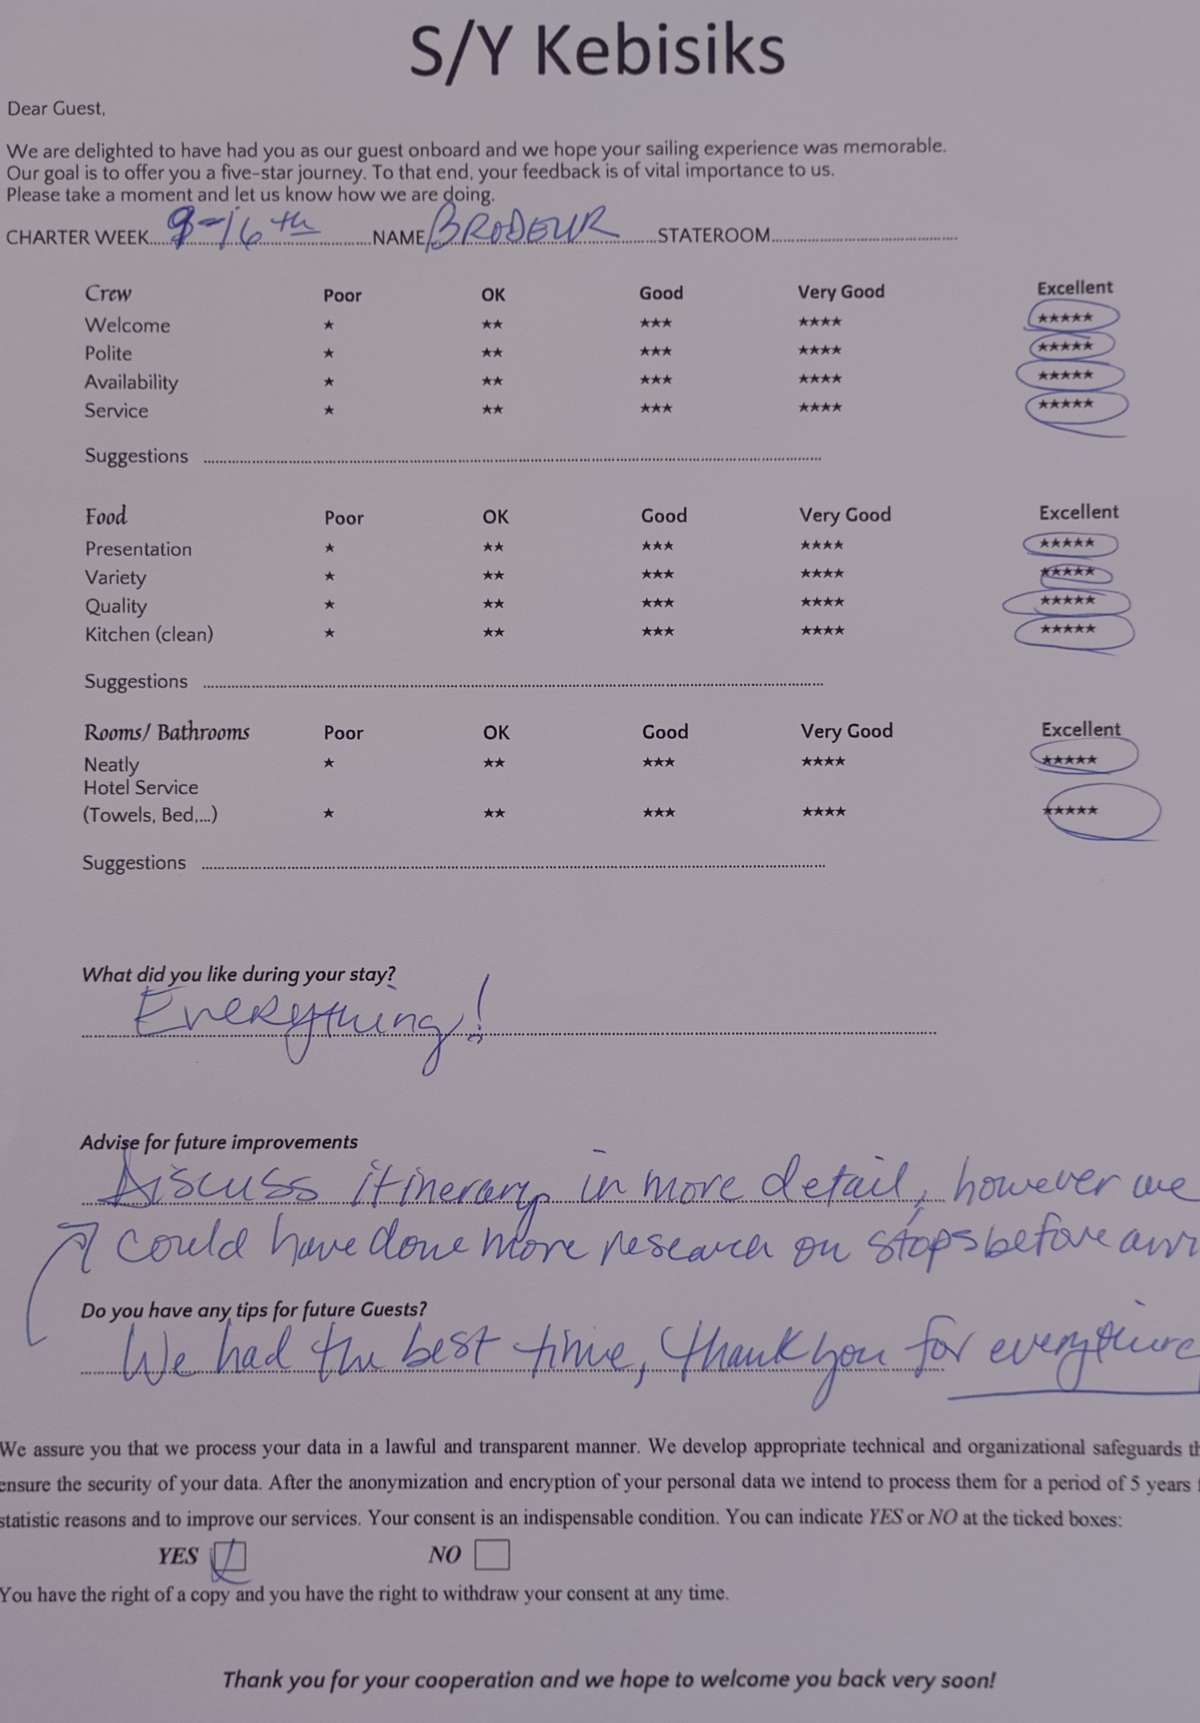 S/Y Kebisiks
Dear Guest,
We are delighted to have had you as our guest onboard and we hope your sailing experience was memorable.
Our goal is to offer you a five-star journey. To that end, your feedback is of vital importance to us.
Please take a moment and let us know how we are doing.
CHARTER WEEK 9-16th NAME BRODEUR STATEROOM
Crew Poor OK Good Very Good Excellent
Welcome ★ ★★ ★★★ ★★★★ ★★★★★
Polite ★ ★★ ★★★ ★★★★ ★★★★★
Availability ★ ★★ ★★★ ★★★★ ★★★★★
Service ★ ★★ ★★★ ★★★★ ★★★★★
Suggestions
Food Poor OK Good Very Good Excellent
Presentation ★ ★★ ★★★ ★★★★ ★★★★★
Variety ★ ★★ ★★★ ★★★★ ★★★★★
Quality ★ ★★ ★★★ ★★★★ ★★★★★
Kitchen (clean) ★ ★★ ★★★ ★★★★ ★★★★★
Suggestions
Rooms/ Bathrooms Poor OK Good Very Good Excellent
Neatly ★ ★★ ★★★ ★★★★ ★★★★★
Hotel Service
(Towels, Bed,...) ★ ★★ ★★★ ★★★★ ★★★★★
Suggestions
What did you like during your stay?
Everything!
Advise for future improvements
Discuss itinerary in more detail, however we
could have done more research on stops before
Do you have any tips for future Guests?
We had the best time, thank you for everything
We assure you that we process your data in a lawful and transparent manner. We develop appropriate technical and organizational safeguards
ensure the security of your data. After the anonymization and encryption of your personal data we intend to process them for a period of 5 years
statistic reasons and to improve our services. Your consent is an indispensable condition. You can indicate YES or NO at the ticked boxes:
YES NO
You have the right of a copy and you have the right to withdraw your consent at any time.
Thank you for your cooperation and we hope to welcome you back very soon!